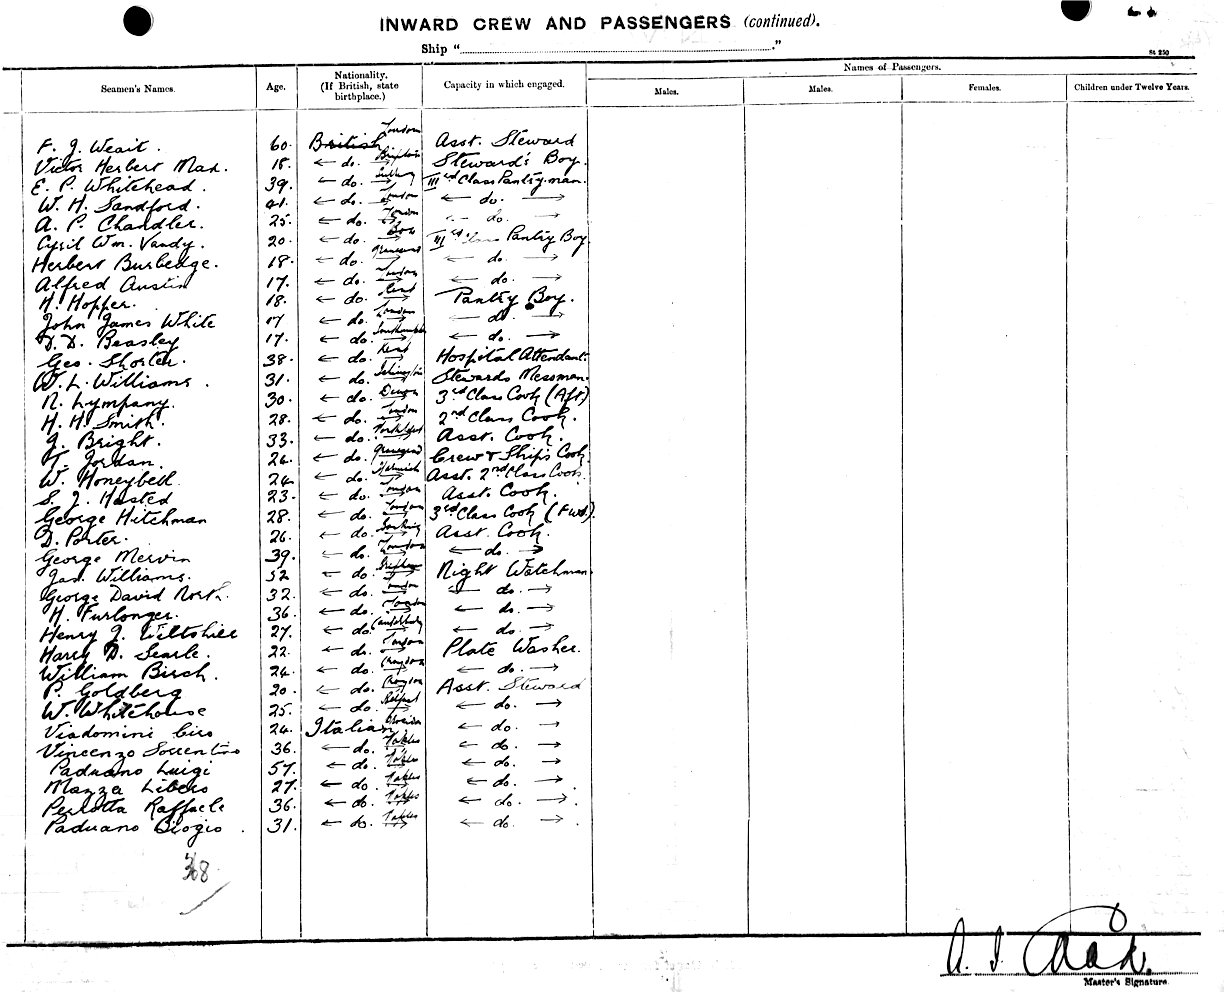 INWARD CREW AND PASSENGERS (continued).
Ship "
."
St 250
Names of Passengers.
Seamen's Names. Age. Nationality. (If British, state birthplace.) Capacity in which engaged. Males. Males. Females. Children under Twelve Years.
F. J. Weait. 60. British London Asst. Steward
Victor Herbert 18. ← do. → Brighton Steward's Boy.
E. P. Whitehead. 39. ← do. → IIIrd Class Pantry-man.
W. H. Sandford. 41. ← do. → London ← do. →
A. P. Chandler. 25. ← do. → London ← do. →
Cyril Wm. Vandy. 20. ← do. → Bow IIIrd Class Pantry Boy
Herbert Burbedge. 18. ← do. → Gravesend ← do. →
Alfred Austin 17. ← do. → London ← do. →
H. Hopper. 18. ← do. → Kent Pantry Boy.
John James White 17 ← do. → London ← do. →
D. D. Beasley 17. ← do. → Southampton ← do. →
Geo. Shorter. 38. ← do. → Kent Hospital Attendant
W. L. Williams. 31. ← do. → Islington Stewards Messman.
N. Lympany. 30. ← do. → Devon 3rd Class Cook (Aft)
H. H. Smith. 28. ← do. → London 2nd Class Cook.
J. Bright. 33. ← do. → Asst. Cook.
T. Jordan. 26. ← do. → Gravesend Crew & Ship's Cook
W. Honeyball 24. ← do. → Harwich Asst. 2nd Class Cook.
S. J. Hasted 23. ← do. → London Asst. Cook.
George Hitchman 28. ← do. → London 3rd Class Cook (Fwd).
D. Porter. 26. ← do. → Barking Asst. Cook.
George Mervin 39. ← do. → London ← do. →
Jas. Williams. 52 ← do. → Night Watchman
George David North. 32. ← do. → London ← do. →
H. Furlonger. 36. ← do. → London ← do. →
Henry J. Wiltshire 27. ← do. Canterbury ← do. →
Harry D. Searle. 22. ← do. → London Plate Washer.
William Birch. 24. ← do. → Croydon ← do. →
P. Goldberg 20. ← do. → Croydon Asst. Steward
W. Whitehouse 25. ← do. → Belfast ← do. →
Viadomini Ciro 24. Italian ← do. →
Vincenzo Sorrentino 36. ← do. → Naples ← do. →
Paduano Luigi 57. ← do. → Naples ← do. →
Mazza Libero 27. ← do. → Naples ← do. →
Perrotta Raffaele 36. ← do. → Naples ← do. →
Paduano Biogio 31. ← do. → Naples ← do. →
Master's Signature